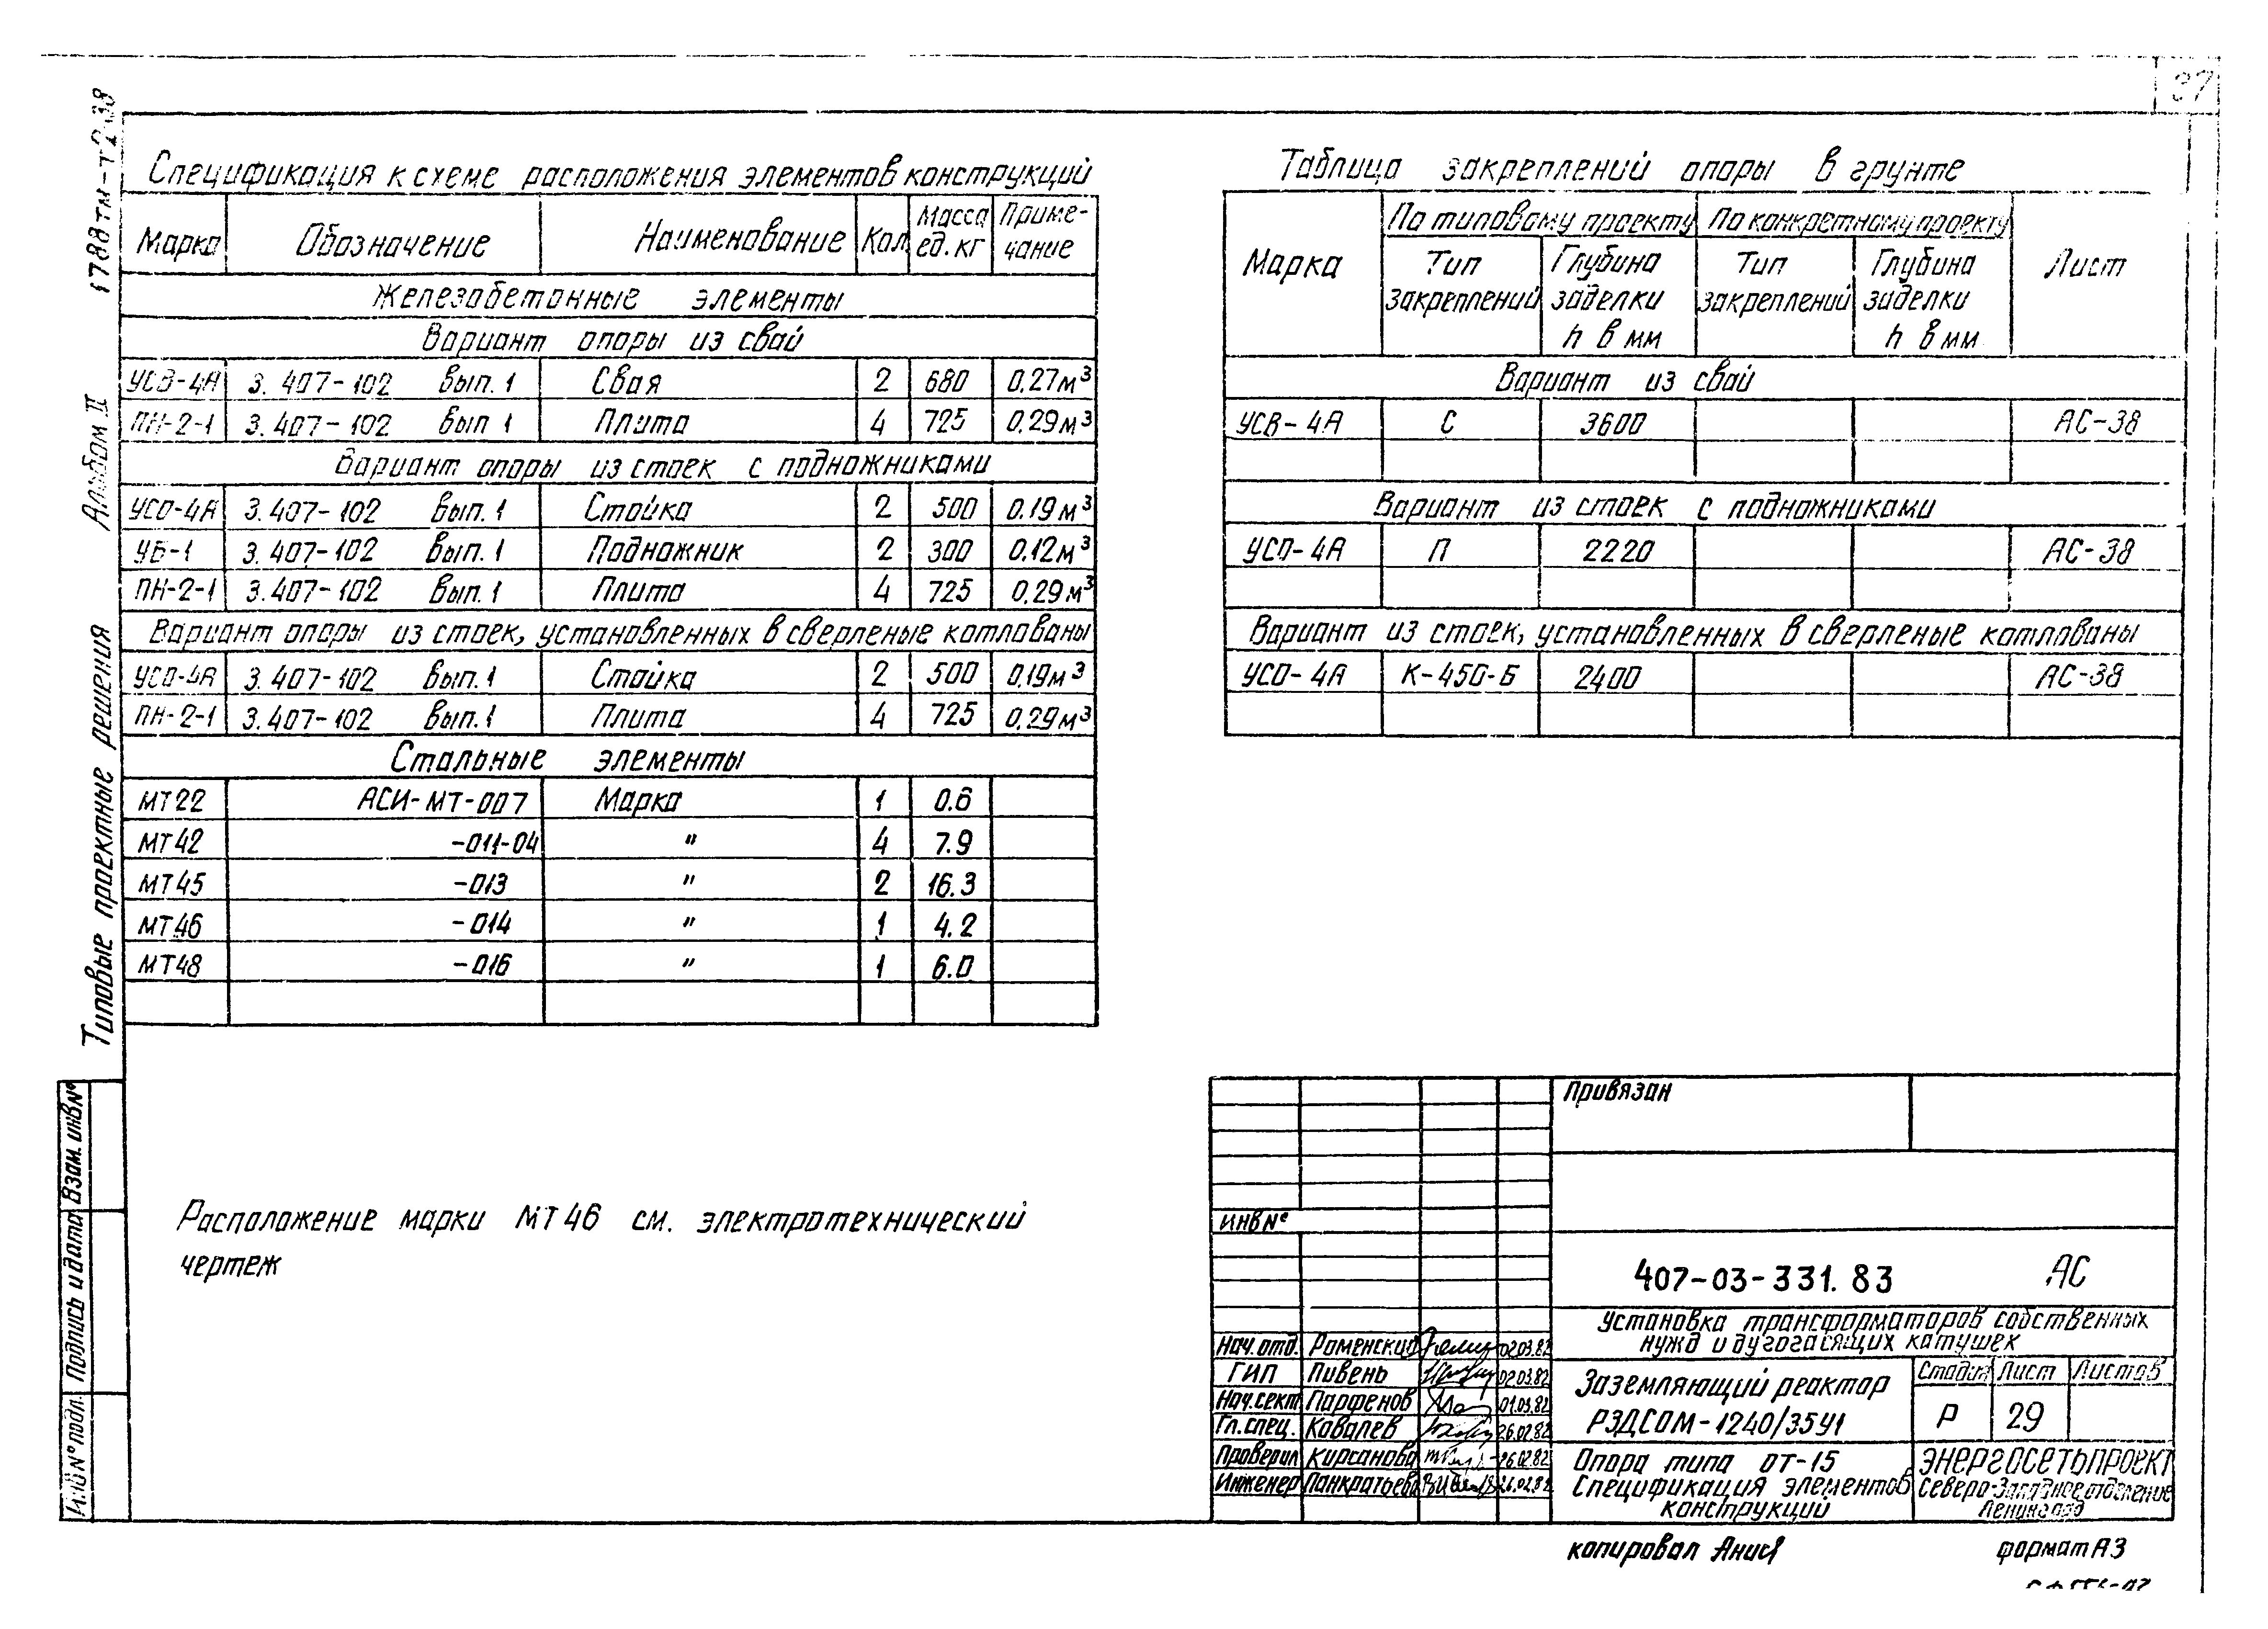 37
1788тм-т2 38
Альбом II
Типовые проектные решения
Спецификация к схеме расположения элементов конструкций
Марка Обозначение Наименование Кол. Масса ед. кг Приме-чание
Железобетонные элементы
Вариант опоры из свай
УСВ-4А 3.407-102 Вып. 1 Свая 2 680 0.27м³
ПН-2-1 3.407-102 Вып 1 Плита 4 725 0.29м³
Вариант опоры из стоек с подножниками
УСО-4А 3.407-102 Вып. 1 Стойка 2 500 0.19м³
УБ-1 3.407-102 Вып. 1 Подножник 2 300 0.12м³
ПН-2-1 3.407-102 Вып. 1 Плита 4 725 0.29м³
Вариант опоры из стоек, установленных в сверленые котлованы
УСО-4А 3.407-102 Вып. 1 Стойка 2 500 0.19м³
ПН-2-1 3.407-102 Вып. 1 Плита 4 725 0.29м³
Стальные элементы
МТ22 АСИ-МТ-007 Марка 1 0.6
МТ42 -011-04 " 4 7.9
МТ45 -013 " 2 16.3
МТ46 -014 " 1 4.2
МТ48 -016 " 1 6.0
Таблица закреплений опоры в грунте
Марка По типовому проекту По конкретному проекту Лист
Тип закреплений Глубина заделки h в мм Тип закреплений Глубина заделки h в мм
Вариант из свай
УСВ-4А С 3600 АС-38
Вариант из стоек с подножниками
УСО-4А П 2220 АС-38
Вариант из стоек, установленных в сверленые котлованы
УСО-4А К-450-Б 2400 АС-38
Расположение марки МТ46 см. электротехнический
чертеж
Взам. инв №
Подпись и дата
Инв № подл.
Привязан
ИНВ №
407-03-331.83 АС
Установка трансформаторов собственных
нужд и дугогасящих катушек
Нач. отд. Роменский 02.03.82
ГИП Пивень 02.03.82
Нач. сект Парфенов 01.03.82
Гл. спец. Ковалев 26.02.82
Проверил Кирсанова 26.02.82
Инженер Панкратьева 26.02.82
Заземляющий реактор
РЗДСОМ-1240/35У1
Стадия Лист Листов
Р 29
Опора типа ОТ-15
Спецификация элементов
конструкций
ЭНЕРГОСЕТЬПРОЕКТ
Северо-Западное отделение
Ленинград
копировал
формат А3